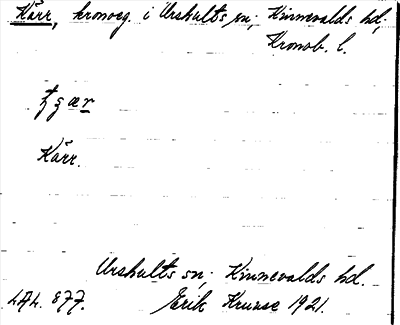 Kärr, kronoeg. i Urshults sn; Kinnevalds hd;
Kronob. l.
Kärr.
Urshults sn; Kinnevalds hd.
LAL. 877. Erik Kruuse 1921.